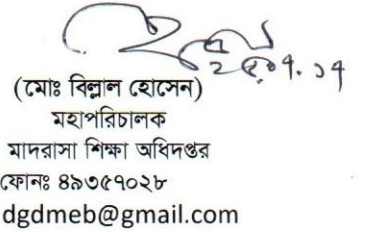 (মোঃ বিল্লাল হোসেন)
মহাপরিচালক
মাদরাসা শিক্ষা অধিদপ্তর
ফোনঃ ৪৯৩৫৭০২৮
dgdmeb@gmail.com